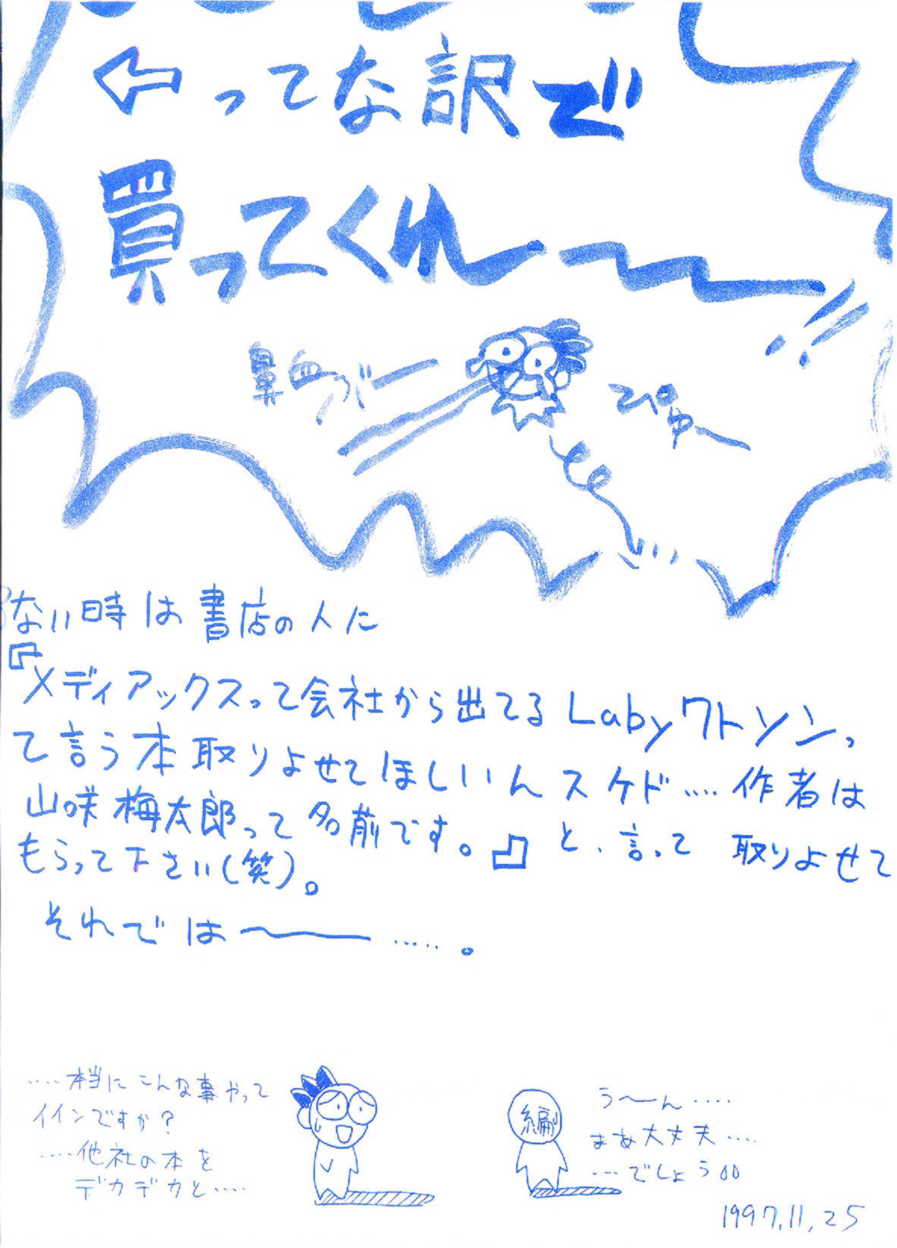 ⇦ってな訳で
買ってくれ〜〜!!
鼻血ブー
ぴゅ〜
ない時は書店の人に
『メディアックスって会社から出てるLabyワトソンっ
て言う本取りよせてほしいんスケド....作者は
山咲梅太郎って名前です。』と、言って取りよせて
もらって下さい(笑)。
それでは〜.....。
....本当にこんな事やって
イインですか?
....他社の本を
デカデカと....
編
う〜ん....
まあ大丈夫....
...でしょう
1997,11,25